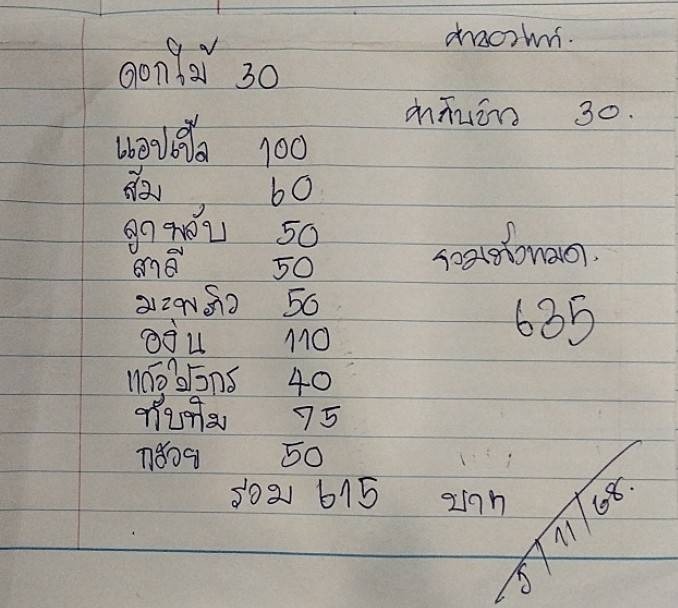 ดอกไม้ 30
แอปเปิ้ล 100
ส้ม 60
ลูกพลับ 50
สาลี่ 50
มะพร้าว 50
องุ่น 110
แก้วมังกร 40
ทับทิม 75
กล้วย 50
รวม 615 บาท
ค่ากับข้าว 30.
รวมทั้งหมด.
635
5/11/68.